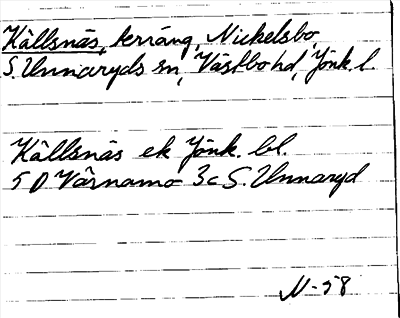 Källsnäs, terräng, Nickelsbo,
S. Unnaryds sn, Västbo hd, Jönk. l.
Källsnäs ek Jönk. bl.
5 D Värnamo 3c S. Unnaryd
N-58